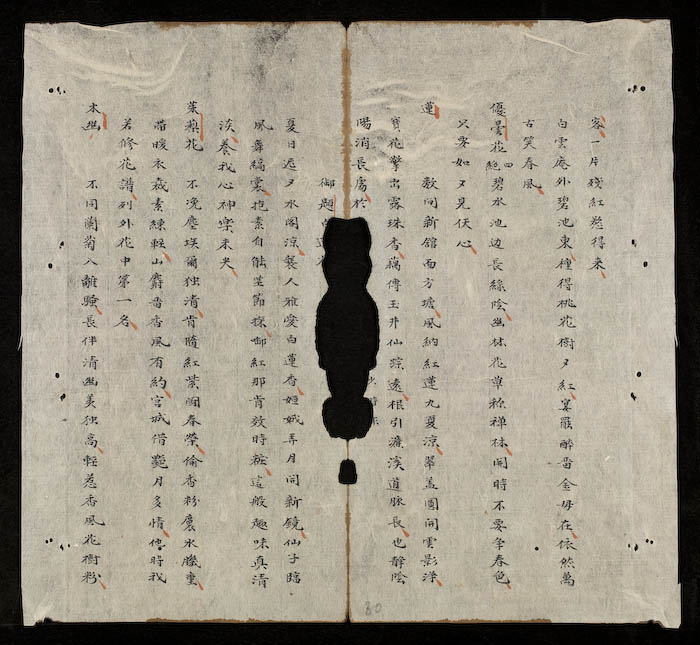 客一片残紅愁得来
白雲庵外碧池東種得桃花樹々紅宴罷醉番金母在依然萬
古笑春風
優曇花 四絶 碧水池边長綠陰幽林花草称禅林開時不要争春色
只要如々見伏心
蓮 敷向新舘面方塘風納紅蓮九夏涼翠盖團開雲影浄
寳花擎出露珠香藕傳玉井仙踪遠根引濂溪道脉長也静陰
陽消長處於
御題
夏日遲々水閣涼襲人雅愛白蓮香姮娥弄月同新鏡仙子臨
風舞縞裳抱素自能堅節操卸紅那肯效時粧這般趣味真清
淡養我心神樂未央
茉莉花 不浼塵埃爾独清肯隨紅紫闹春榮偷香粉裛氷機重
帶暖衣裁素練軽山麝番香風有約宫城借艷月多情他時我
若修花譜列外花中第一名
木 不用蘭菊入離騷長伴清幽美独高軽惹香風花樹粉